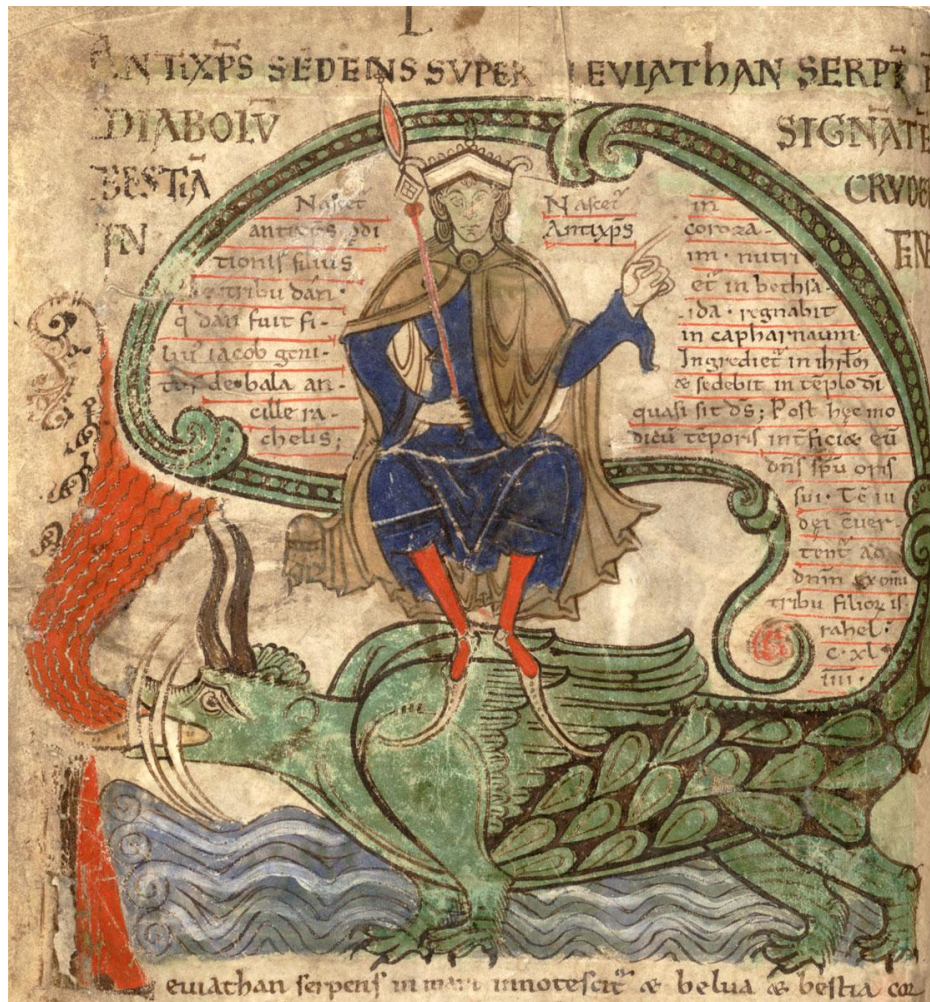 L
ANTIXP̄S SEDENS SVPER LEVIATHAN SERPĒ
DIABOLV̄ SIGNĀTĒ
BESTIĀ CRVDE
IN FIN
Nascet᷑
antixp̄s ꝑdi
tionis filius
de tribu dan·
q̄ dan fuit fi-
liuſ iacob geni-
tus de bala an-
cille ra-
chelis;
Nascet᷑ in
Antixp̄s coroza-
im· nutri
et᷑ in bethsa-
ida· regnabit
in capharnaum·
Ingrediet᷑ in ihrlm
& sedebit in tēplo dī
quasi sit ds̄; Post hęc mo
dicū tēporis int̄ficiæ eū
dn̄s sp̄u oris
sui· Tē iu
dęi cuer-
tent᷑ ad
dnm̄ ex omi
tribu filioꝝ is
rahel·
c·xl
iiii·
euiathan serpens in mari innotescit᷑ & belua & bestia cor